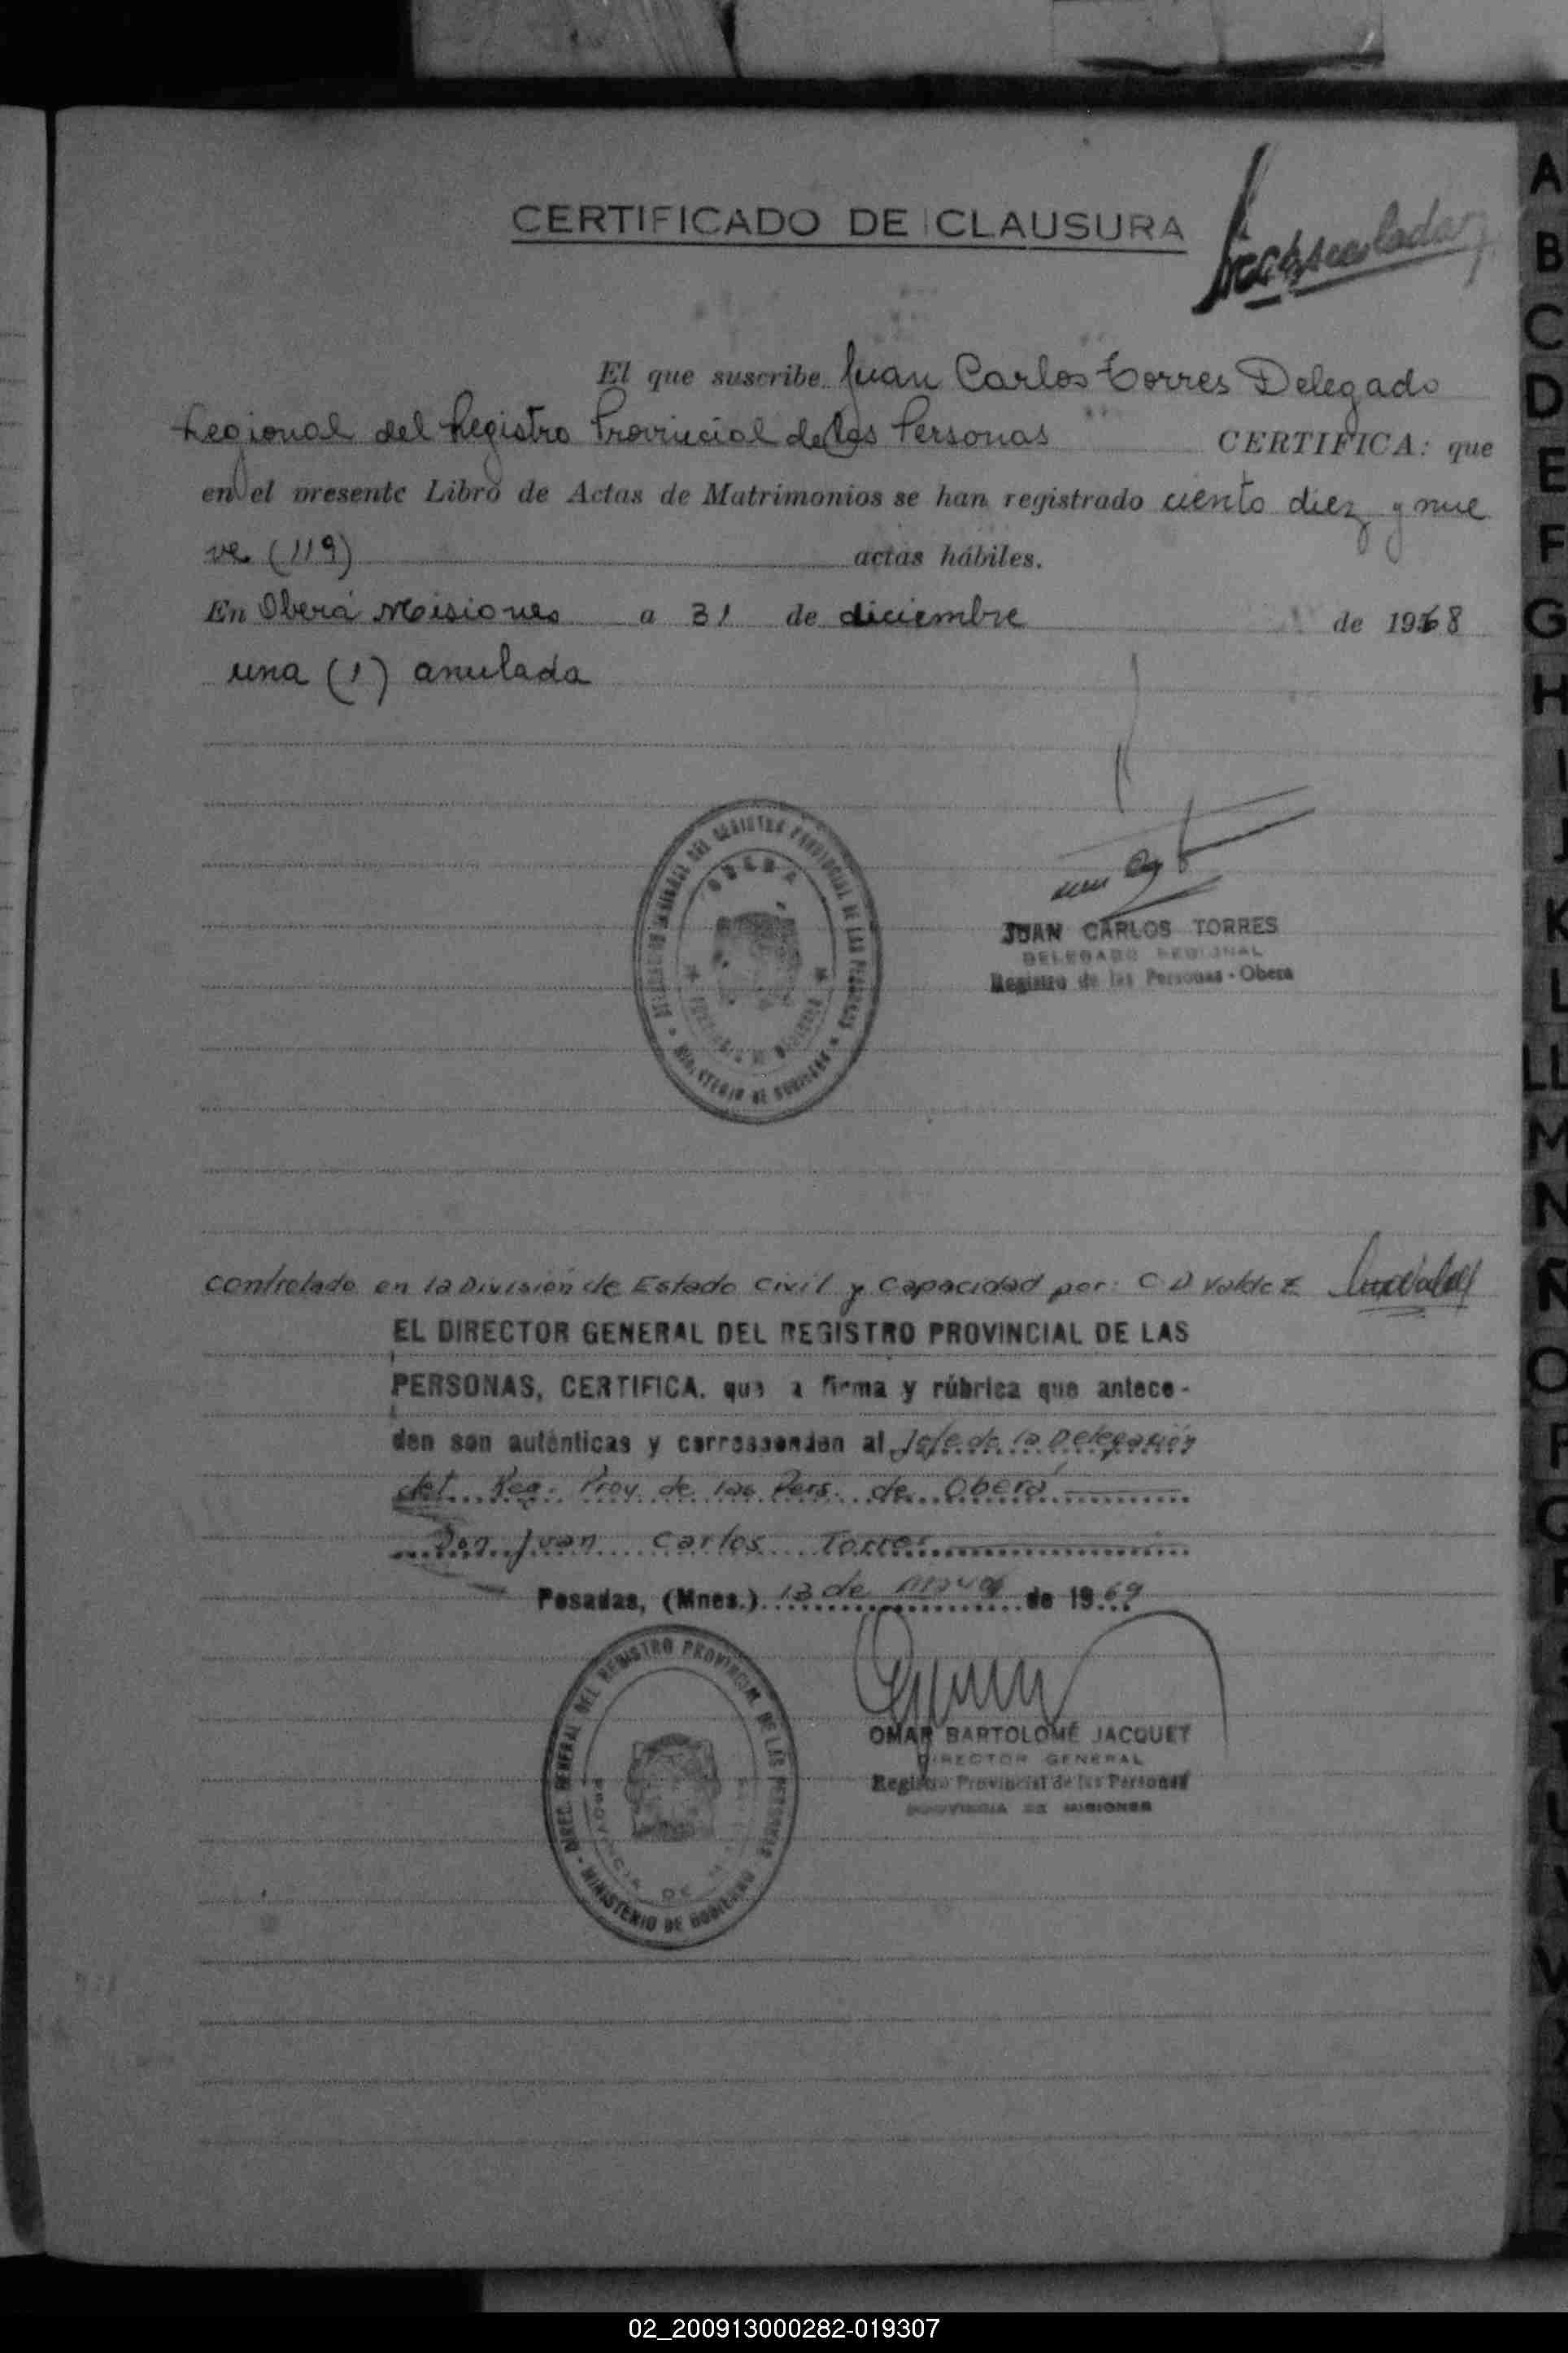 CERTIFICADO DE CLAUSURA
El que suscribe Juan Carlos Torres Delegado
Regional del Registro Provincial de las Personas CERTIFICA: que
en el presente Libro de Actas de Matrimonios se han registrado ciento diez y nue
ve (119) actas hábiles.
En Oberá Misiones a 31 de diciembre de 1968
una (1) anulada
DEL REGISTRO PROVINCIAL DE LAS PERSONAS
OBERA
PROVINCIA DE MISIONES
MINISTERIO DE GOBIERNO
JUAN CARLOS TORRES
DELEGADO REGIONAL
Registro de las Personas - Obera
Controlado en la División de Estado Civil y Capacidad por: C D Valdez
EL DIRECTOR GENERAL DEL REGISTRO PROVINCIAL DE LAS
PERSONAS, CERTIFICA. que a firma y rúbrica que antece-
den son auténticas y corresponden al Jefe de la Delegación
del Reg. Prov. de las Pers. de Oberá
Don Juan Carlos Torres
Posadas, (Mnes.) 13 de de 1969
DIREC. GENERAL DEL REGISTRO PROVINCIAL DE LAS PERSONAS
PROVINCIA DE
MINISTERIO DE GOBIERNO
OMAR BARTOLOMÉ JACQUET
DIRECTOR GENERAL
Registro Provincial de las Personas
PROVINCIA DE MISIONES
A
B
C
D
E
F
G
H
I
J
K
L
LL
M
N
Ñ
O
P
Q
R
02_200913000282-019307